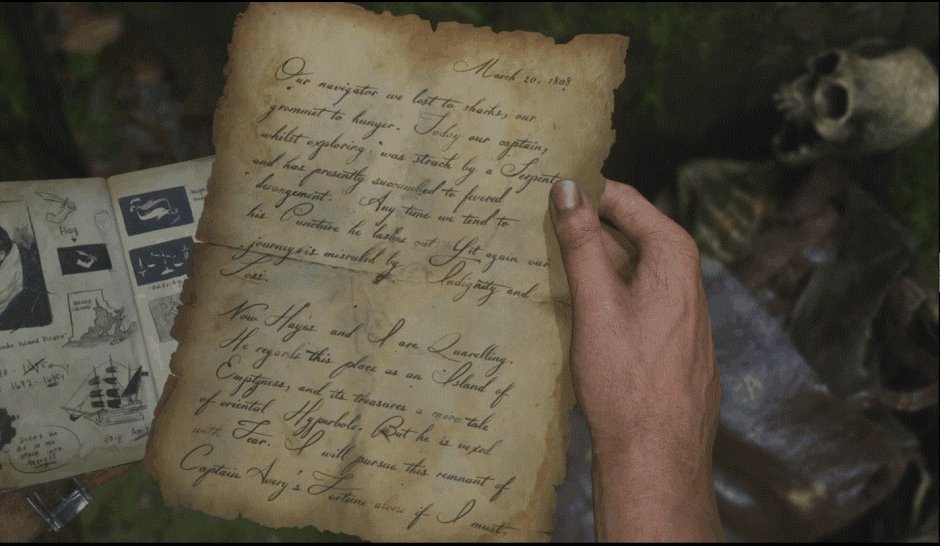 March 20, 1808
Our navigator we lost to sharks, our
grommet to hunger. Today our captain,
whilst exploring, was struck by a Serpent
and has presently succumbed to fevered
derangement. Any time we tend to
his Puncture he lashes out. Yet again our
journey is misruled by Indignity and
Loss.
Now Hayes and I are Quarelling.
He regards this place as an Island of
Emptyness, and its treasures a mere tale
of oriental Hyperbole. But he is vexed
with Fear. I will pursue this remnant of
Captain Avery's Fortune alone if I must.
Flag
Island Pirate
Ship